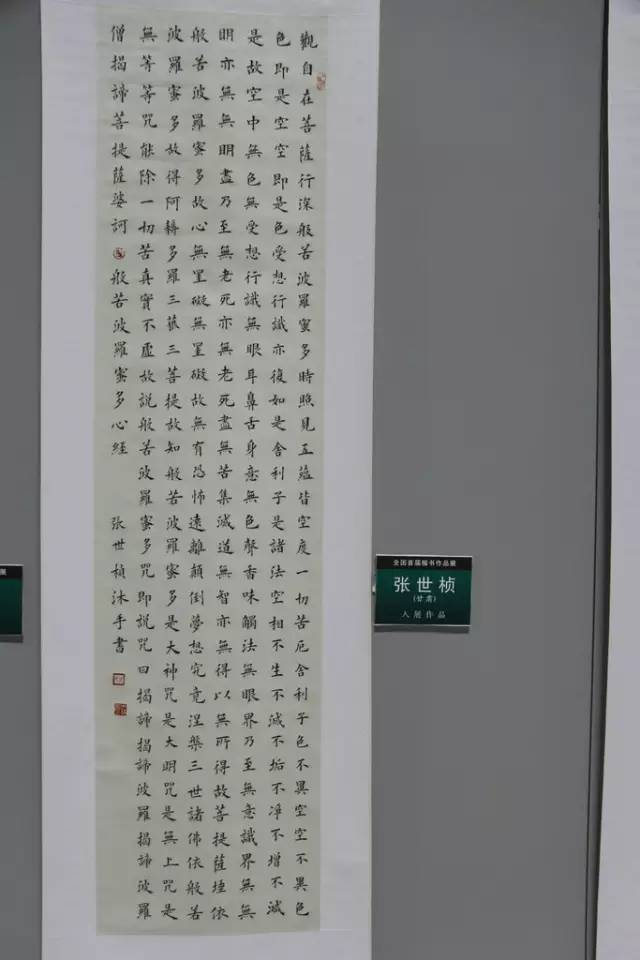 觀自在菩薩行深般若波羅蜜多時照見五蘊皆空度一切苦厄舍利子色不異空空不異色
色即是空空即是色受想行識亦復如是舍利子是諸法空相不生不滅不垢不凈不增不減
是故空中無色無受想行識無眼耳鼻舌身意無色聲香味觸法無眼界乃至無意識界無無
明亦無無明盡乃至無老死亦無老死盡無苦集滅道無智亦無得以無所得故菩提薩埵依
般若波羅蜜多故心無罣礙無罣礙故無有恐怖遠離顛倒夢想究竟涅槃三世諸佛依般若
波羅蜜多故得阿耨多羅三藐三菩提故知般若波羅蜜多是大神咒是大明咒是無上咒是
無等等咒能除一切苦真實不虛故説般若波羅蜜多咒即説咒曰揭諦揭諦波羅揭諦波羅
僧揭諦菩提薩婆訶 般若波羅蜜多心經 張世楨沐手書
全国首届楷书作品展
张世桢
(甘肃)
入展作品
展